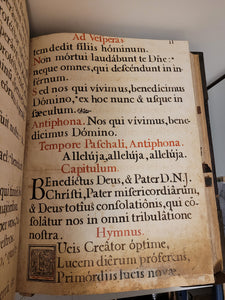 Ad Vesperas
tem dedit filiis hóminum.
Non mórtui laudábunt te Dñe:
neque omnes, qui descéndunt in in-
fernum.
Sed nos qui vivimus, benedicimus
Dómino, ex hoc nunc & usque in
sæculum.
Antiphona. Nos qui vivimus, benedi-
cimus Dómino.
Tempore Paschali, Antiphona.
Allelúja, allelúja, allelúja.
Capitulum.
Benedictus Deus, & Pater D.N.J.
Christi, Pater misericordiárum,
& Deus totius consolatiónis, qui có-
solátur nos in omni tribulatióne
nostra.
Hymnus.
Lucis Creátor óptime,
Lucem diérum próferens,
Primórdiis lucis novæ,